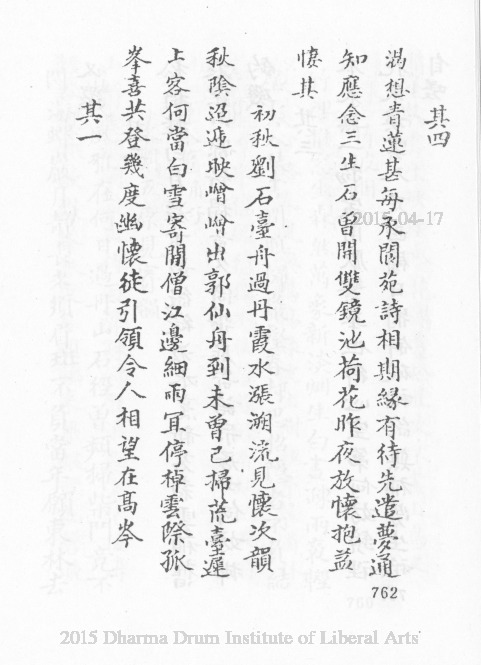 其四
渴想青蓮甚每承閬苑詩相期緣有待先遣夢通
知應念三生石曾開雙鏡池荷花昨夜放懷抱益
悽其
初秋劉石臺舟過丹霞水漲溯流見懷次韻
秋陰迢遞映嶒出郭仙舟到未曾已掃荒臺遲
上客何當白雪寄閒僧江邊細雨冝停棹雲際孤
峯喜共登幾度幽懷徒引領令人相望在高岑
其一
762
2015-04-17
2015 Dharma Drum Institute of Liberal Arts